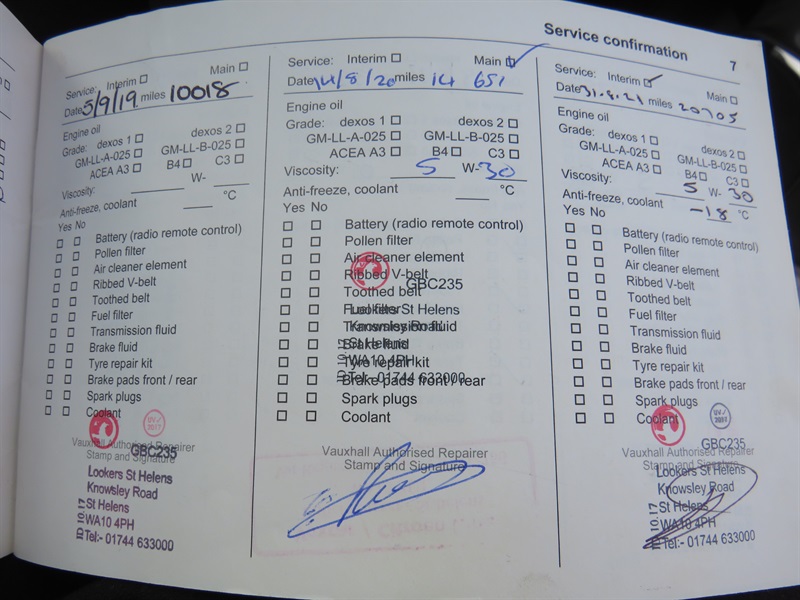 Service confirmation
7
Service: Interim Main
Date 5/9/19 miles 10018
Engine oil
Grade: dexos 1 dexos 2
GM-LL-A-025 GM-LL-B-025
ACEA A3 B4 C3
Viscosity: W-
Anti-freeze, coolant °C
Yes No
Battery (radio remote control)
Pollen filter
Air cleaner element
Ribbed V-belt
Toothed belt
Fuel filter
Transmission fluid
Brake fluid
Tyre repair kit
Brake pads front / rear
Spark plugs
Coolant
UV/2017
Vauxhall Authorised Repairer
GBC235
Stamp and Signature
Lookers St Helens
Knowsley Road
St Helens
WA10 4PH
Tel:- 01744 633000
ID 10.17
Service: Interim Main
Date 14/8/20 miles 14 651
Engine oil
Grade: dexos 1 dexos 2
GM-LL-A-025 GM-LL-B-025
ACEA A3 B4 C3
Viscosity: 5 W-30
Anti-freeze, coolant °C
Yes No
Battery (radio remote control)
Pollen filter
Air cleaner element
Ribbed V-belt
GBC235
Toothed belt
Fuel filter
Lookers St Helens
Transmission fluid
Knowsley Road
Brake fluid
St Helens
Tyre repair kit
WA10 4PH
Brake pads front / rear
Tel:- 01744 633000
Spark plugs
Coolant
Vauxhall Authorised Repairer
Stamp and Signature
Service: Interim Main
Date 31.8.21 miles 20705
Engine oil
Grade: dexos 1 dexos 2
GM-LL-A-025 GM-LL-B-025
ACEA A3 B4 C3
Viscosity: 5 W-30
Anti-freeze, coolant -18 °C
Yes No
Battery (radio remote control)
Pollen filter
Air cleaner element
Ribbed V-belt
Toothed belt
Fuel filter
Transmission fluid
Brake fluid
Tyre repair kit
Brake pads front / rear
Spark plugs
Coolant
UV/2017
GBC235
Vauxhall Authorised Repairer
Stamp and Signature
Lookers St Helens
Knowsley Road
St Helens
WA10 4PH
Tel:- 01744 633000
ID 10.17